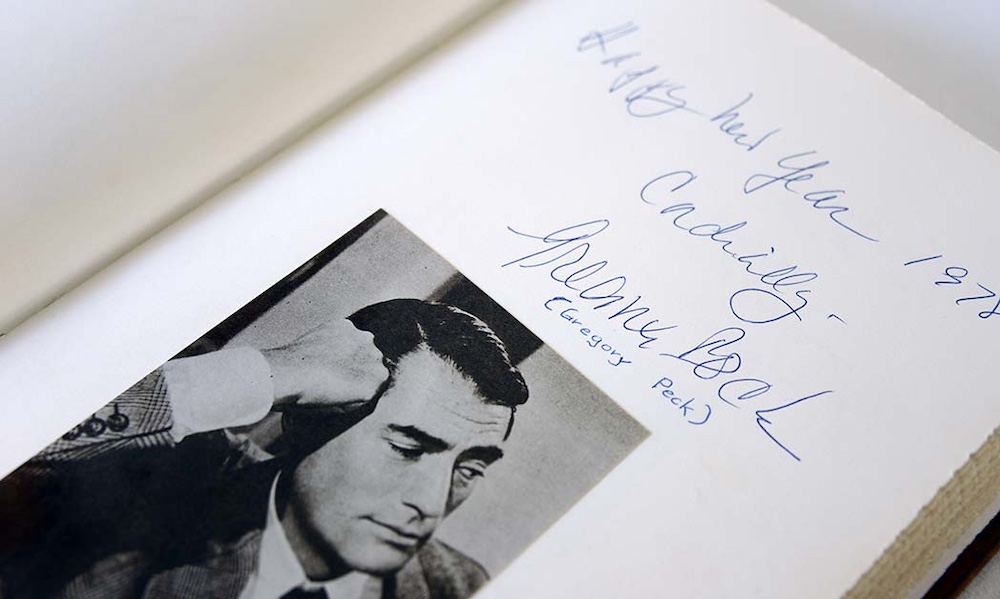 Happy New Year 1978
Cordially -
Gregory Peck
(Gregory Peck)